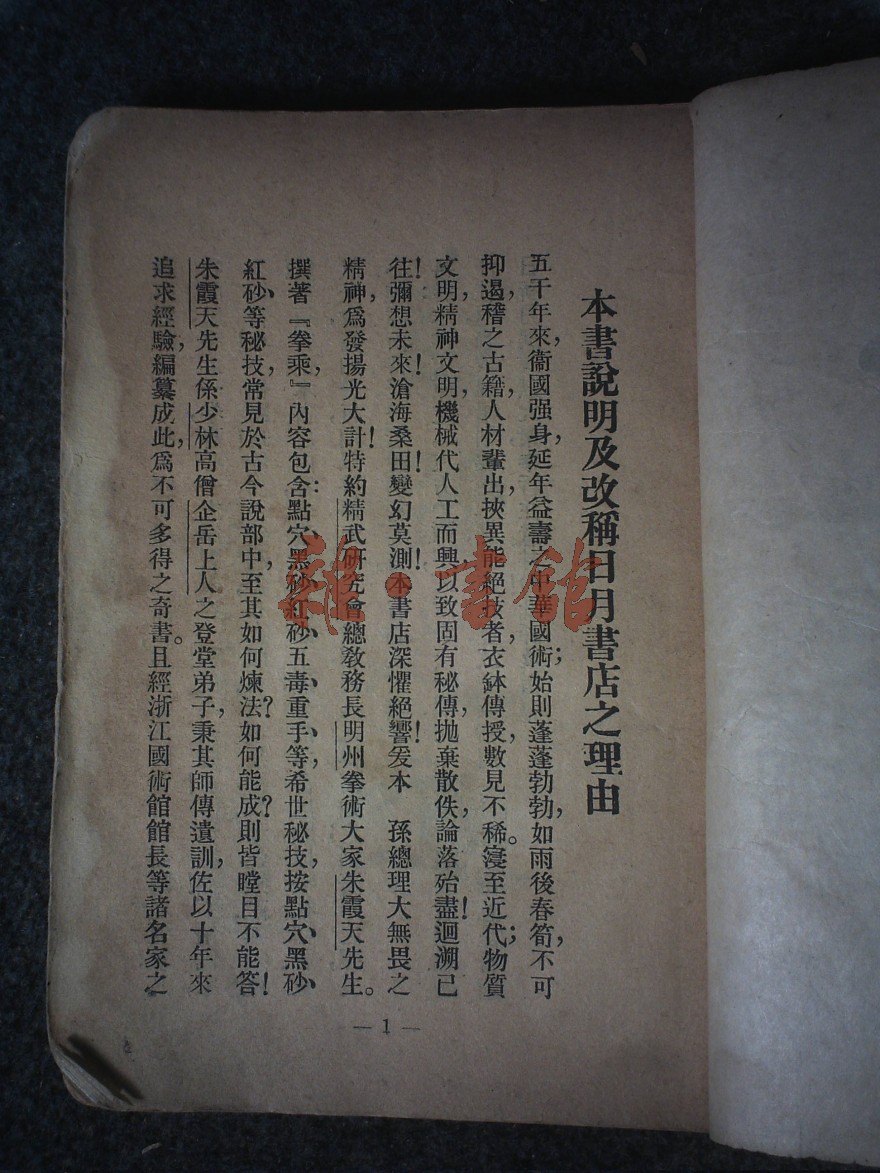 本書說明及改稱日月書店之理由
五千年來，衞國强身，延年益壽之中華國術；始則蓬蓬勃勃，如雨後春筍，不可
抑遏，稽之古籍，人材輩出，挾異能絕技者，衣鉢傳授，數見不稀。寖至近代；物質
文明，精神文明，機械代人工而興，以致固有秘傳，抛棄散佚，論落殆盡！迴溯已
往！彌想未來！滄海桑田！變幻莫測！本書店深懼絕響！爰本　孫總理大無畏之
精神，爲發揚光大計！特約精武研究會總敎務長明州拳術大家朱霞天先生。
撰著『拳乘，』內容包含：點穴、黑砂、紅砂、五毒、重手、等，希世秘技，按點穴、黑砂、
紅砂、等秘技，常見於古今說部中，至其如何煉法？如何能成？則皆瞠目不能答！
朱霞天先生係少林高僧企岳上人之登堂弟子，秉其師傳遺訓，佐以十年來
追求經驗，編纂成此，爲不可多得之奇書。且經浙江國術館館長等諸名家之
— 1 —
雜·書館